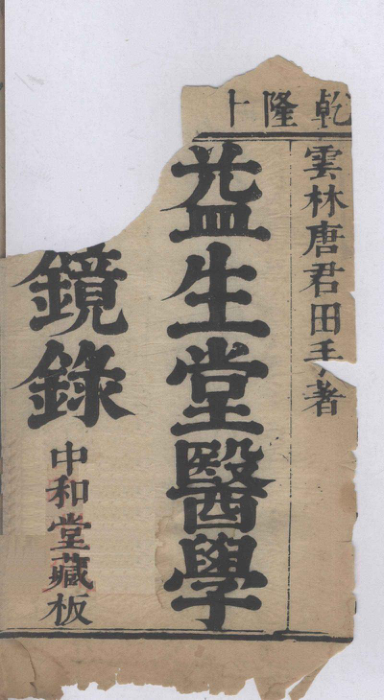 乾隆
雲林唐君田手著
益生堂醫學
鏡錄
中和堂藏板